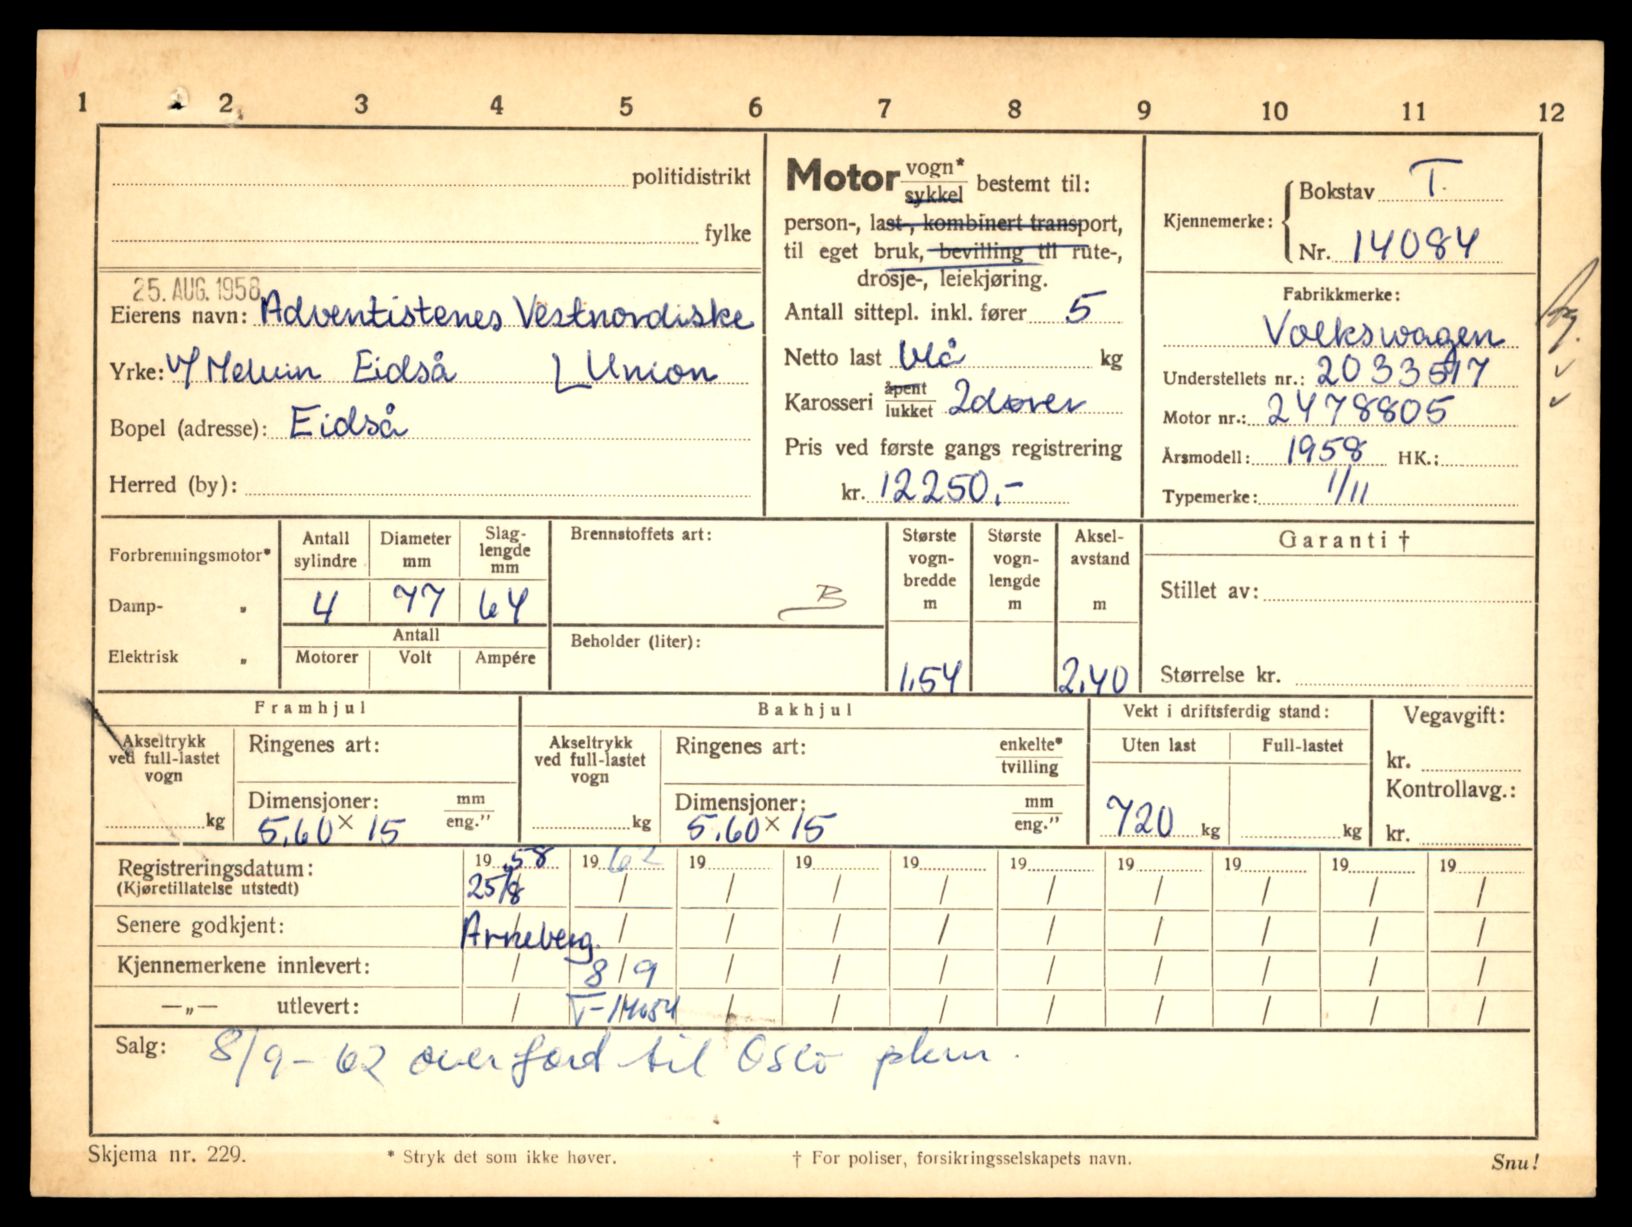 1 2 3 4 5 6 7 8 9 10 11 12
politidistrikt
fylke
25. AUG. 1958
Eierens navn: Adventistenes Vestnordiske
Yrke: v/ Melvin Eidså Union
Bopel (adresse): Eidså
Herred (by):
Motor vogn* sykkel bestemt til:
person-, last-, kombinert transport,
til eget bruk, bevilling til rute-,
drosje-, leiekjøring.
Antall sittepl. inkl. fører 5
Netto last blå kg
Karosseri åpent lukket 2dører
Pris ved første gangs registrering
kr. 12250,-
Kjennemerke: Bokstav T.
Nr. 14084
Fabrikkmerke:
Volkswagen
Understellets nr.: 2033517
Motor nr.: 2478805
Årsmodell: 1958 HK.:
Typemerke: 1/11
Forbrenningsmotor*
Damp- "
Elektrisk "
Antall sylindre Diameter mm Slag-lengde mm
4 77 64
Antall
Motorer Volt Ampére
Brennstoffets art:
B
Beholder (liter):
Største vogn-bredde m Største vogn-lengde m Aksel-avstand m
1.54 2.40
Garanti †
Stillet av:
Størrelse kr.
Framhjul
Akseltrykk ved full-lastet vogn
kg
Ringenes art:
Dimensjoner: mm eng."
5.60 x 15
Bakhjul
Akseltrykk ved full-lastet vogn
kg
Ringenes art: enkelte* tvilling
Dimensjoner: mm eng."
5.60 x 15
Vekt i driftsferdig stand:
Uten last Full-lastet
720 kg kg
Vegavgift:
kr.
Kontrollavg.:
kr.
Registreringsdatum: 19 58 19 62 19 19 19 19 19 19 19 19
(Kjøretillatelse utstedt) 25/8 / / / / / / / / /
Senere godkjent: Arneberg. / / / / / / / / /
Kjennemerkene innlevert: / 8/9 / / / / / / / /
—„— utlevert: / T-14054 / / / / / / / /
Salg: 8/9-62 overført til Oslo
Skjema nr. 229. * Stryk det som ikke høver. † For poliser, forsikringsselskapets navn. Snu!